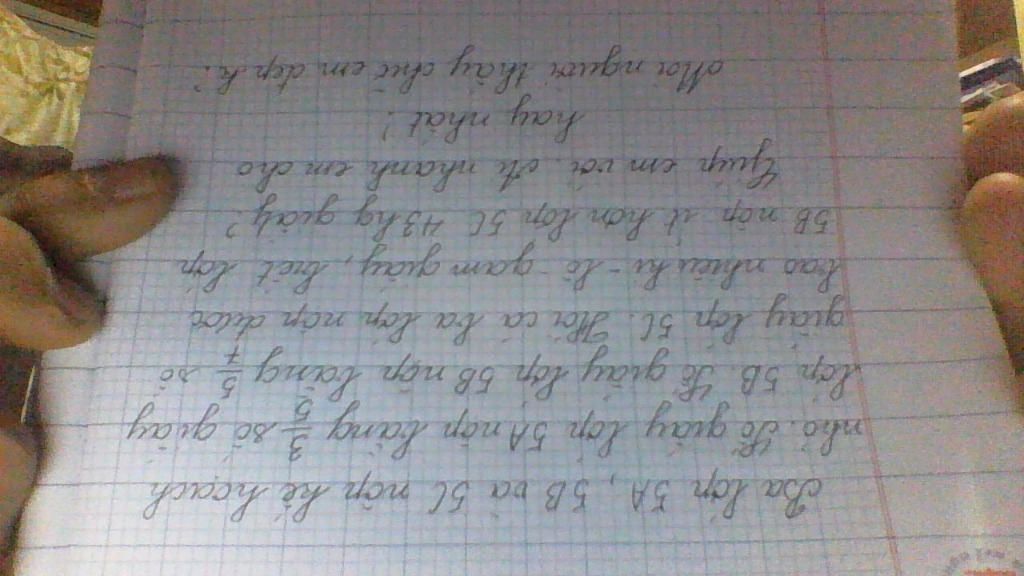 Ba lớp 5A, 5B và 5C nộp kế hoạch
nhỏ. Số giấy lớp 5A nộp bằng 3/5 số giấy
lớp 5B. Số giấy lớp 5B nộp bằng 5/7 số
giấy lớp 5C. Hỏi cả ba lớp nộp được
bao nhiêu ki-lô-gam giấy, biết lớp
5B nộp ít hơn lớp 5C 43kg giấy?
Giúp em với. Ai nhanh em cho
hay nhất!
Mọi người thấy chữ em đẹp k?